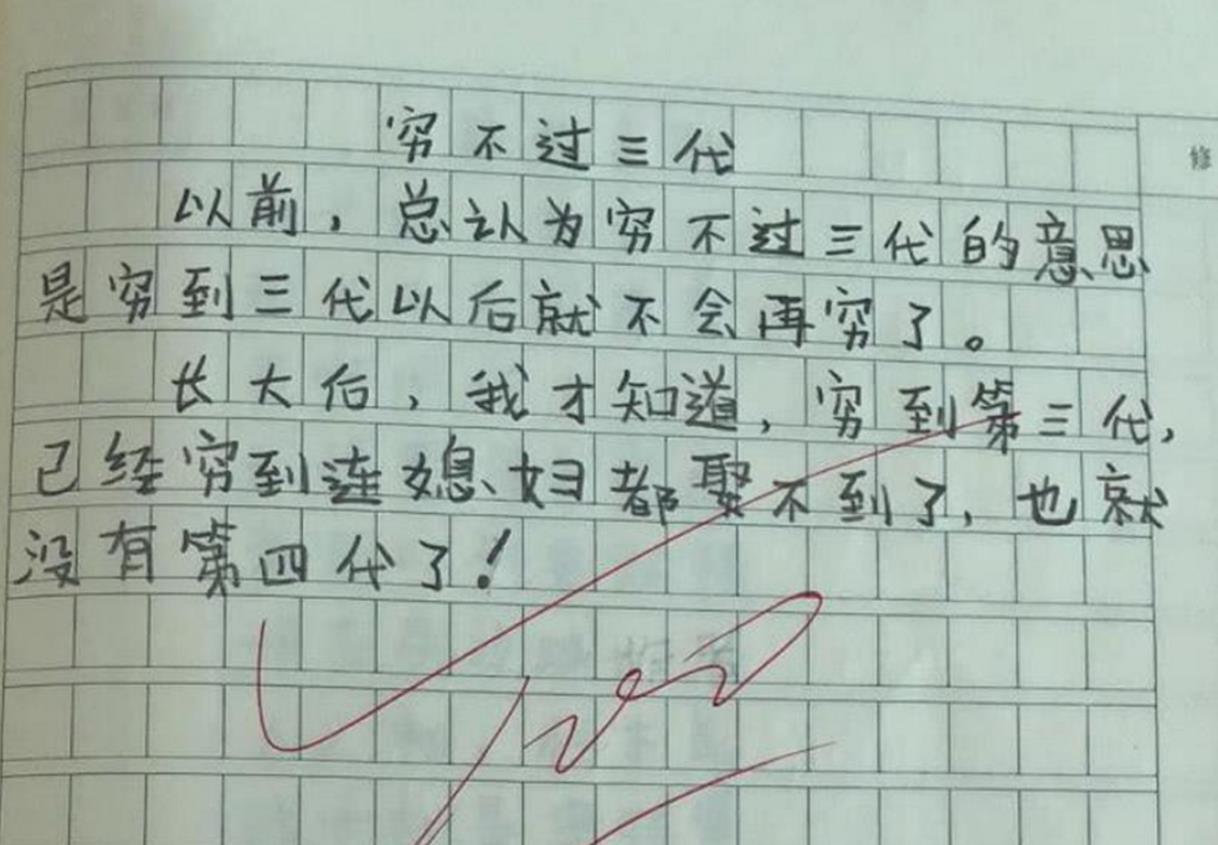 修
穷不过三代
以前，总认为穷不过三代的意思
是穷到三代以后就不会再穷了。
长大后，我才知道，穷到第三代，
已经穷到连媳妇都娶不到了，也就
没有第四代了！